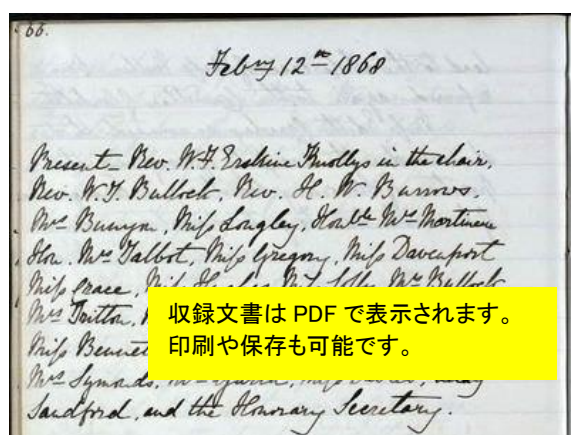 66.
Feby 12th 1868
Present - Rev. W. F. Erskine Knollys in the chair,
Rev. W. T. Bullock, Rev. H. W. Burrows.
Mrs Bunyon, Miss Longley, Honble Mrs Mortineau
Hon. Mrs Talbot, Miss Gregory, Miss Davenport
Miss Grace, Miss Hughes, Miss Mrs Bullock
Mrs Tritton,
Miss Bennet
Mrs Symonds,
Sandford, and the Honorary Secretary.
収録文書は PDF で表示されます。
印刷や保存も可能です。